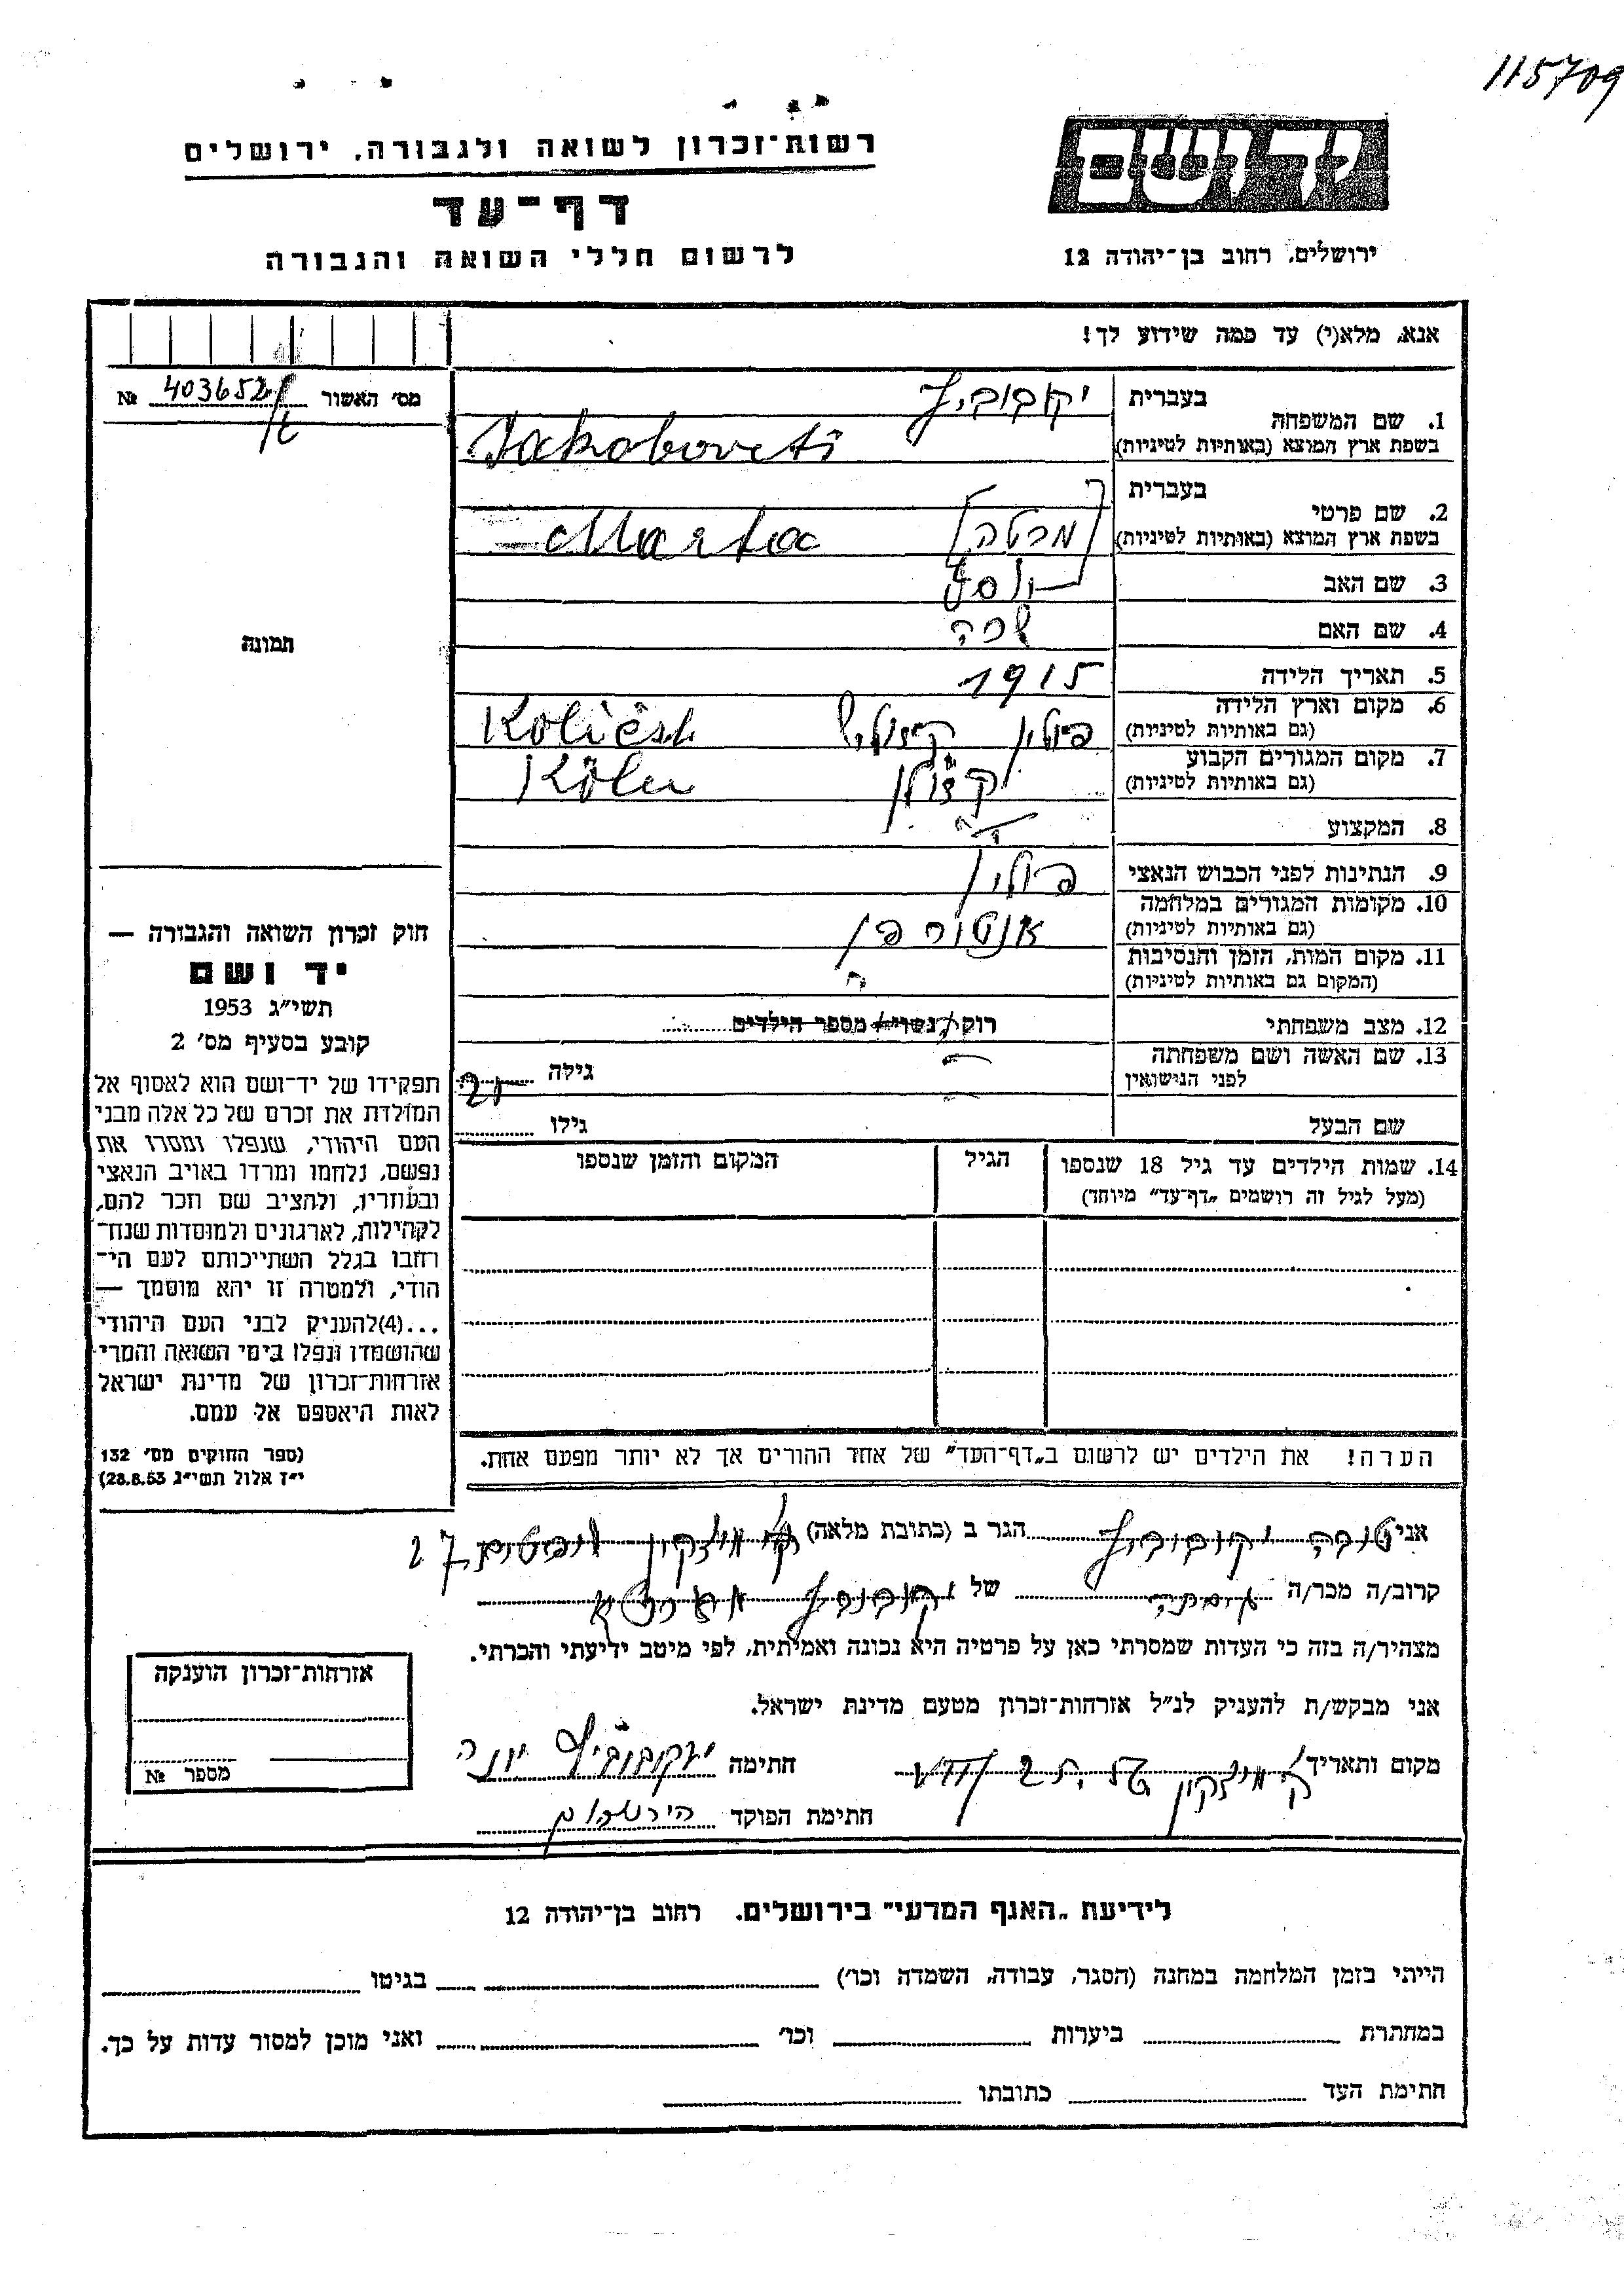 115709
רשות־זכרון לשואה ולגבורה, ירושלים
יד ושם
דף־עד
לרשום חללי השואה והגבורה
ירושלים, רחוב בן־יהודה 12
אנא, מלא(י) עד כמה שידוע לך!
מס׳ האשור № 403652
1. שם המשפחה
בעברית יקבוביץ
בשפת ארץ המוצא (באותיות לטיניות) Jakobovets
2. שם פרטי
בעברית [מרטה]
בשפת ארץ המוצא (באותיות לטיניות) Marta
3. שם האב יוסף
4. שם האם שרה
5. תאריך הלידה 1915
6. מקום וארץ הלידה
(גם באותיות לטיניות) פולין Koliesh
7. מקום המגורים הקבוע
(גם באותיות לטיניות) קלן Köln
8. המקצוע
9. הנתינות לפני הכבוש הנאצי פולין
10. מקומות המגורים במלחמה
(גם באותיות לטיניות) אנטורפן
11. מקום המות, הזמן והנסיבות
(המקום גם באותיות לטיניות) ?
12. מצב משפחתי רוק/נשוי/ מספר הילדים
13. שם האשה ושם משפחתה
לפני הנישואין
גילה
שם הבעל גילו
14. שמות הילדים עד גיל 18 שנספו
(מעל לגיל זה רושמים „דף־עד” מיוחד)
הגיל
המקום והזמן שנספו
תמונה
חוק זכרון השואה והגבורה —
יד ושם
תשי״ג 1953
קובע בסעיף מס׳ 2
תפקידו של יד־ושם הוא לאסוף אל
המולדת את זכרם של כל אלה מבני
העם היהודי, שנפלו ומסרו את
נפשם, נלחמו ומרדו באויב הנאצי
ובעוזריו, ולהציב שם וזכר להם,
לקהילות, לארגונים ולמוסדות שנח־
רחבו בגלל השתייכותם לעם הי־
הודי, ולמטרה זו יהא מוסמך —
...(4)להעניק לבני העם היהודי
שהושמדו ונפלו בימי השואה והמרי
אזרחות־זכרון של מדינת ישראל
לאות היאספם אל עמם.
(ספר החוקים מס׳ 132
י״ז אלול תשי״ג 28.8.53)
הערה! את הילדים יש לרשום ב„דף־העד” של אחד ההורים אך לא יותר מפעם אחת.
אני יקובוביץ הגר ב (כתובת מלאה) 27
קרוב/ה מכר/ה של
מצהיר/ה בזה כי העדות שמסרתי כאן על פרטיה היא נכונה ואמיתית, לפי מיטב ידיעתי והכרתי.
אני מבקש/ת להעניק לנ״ל אזרחות־זכרון מטעם מדינת ישראל.
מקום ותאריך חתימה יעקובוביץ יונה
חתימת הפוקד
אזרחות־זכרון הוענקה
מספר №
לידיעת „האגף המדעי” בירושלים. רחוב בן־יהודה 12
הייתי בזמן המלחמה במחנה (הסגר, עבודה, השמדה וכו׳) בגיטו
במחתרת ביערות וכו׳ ואני מוכן למסור עדות על כך.
חתימת העד כתובתו